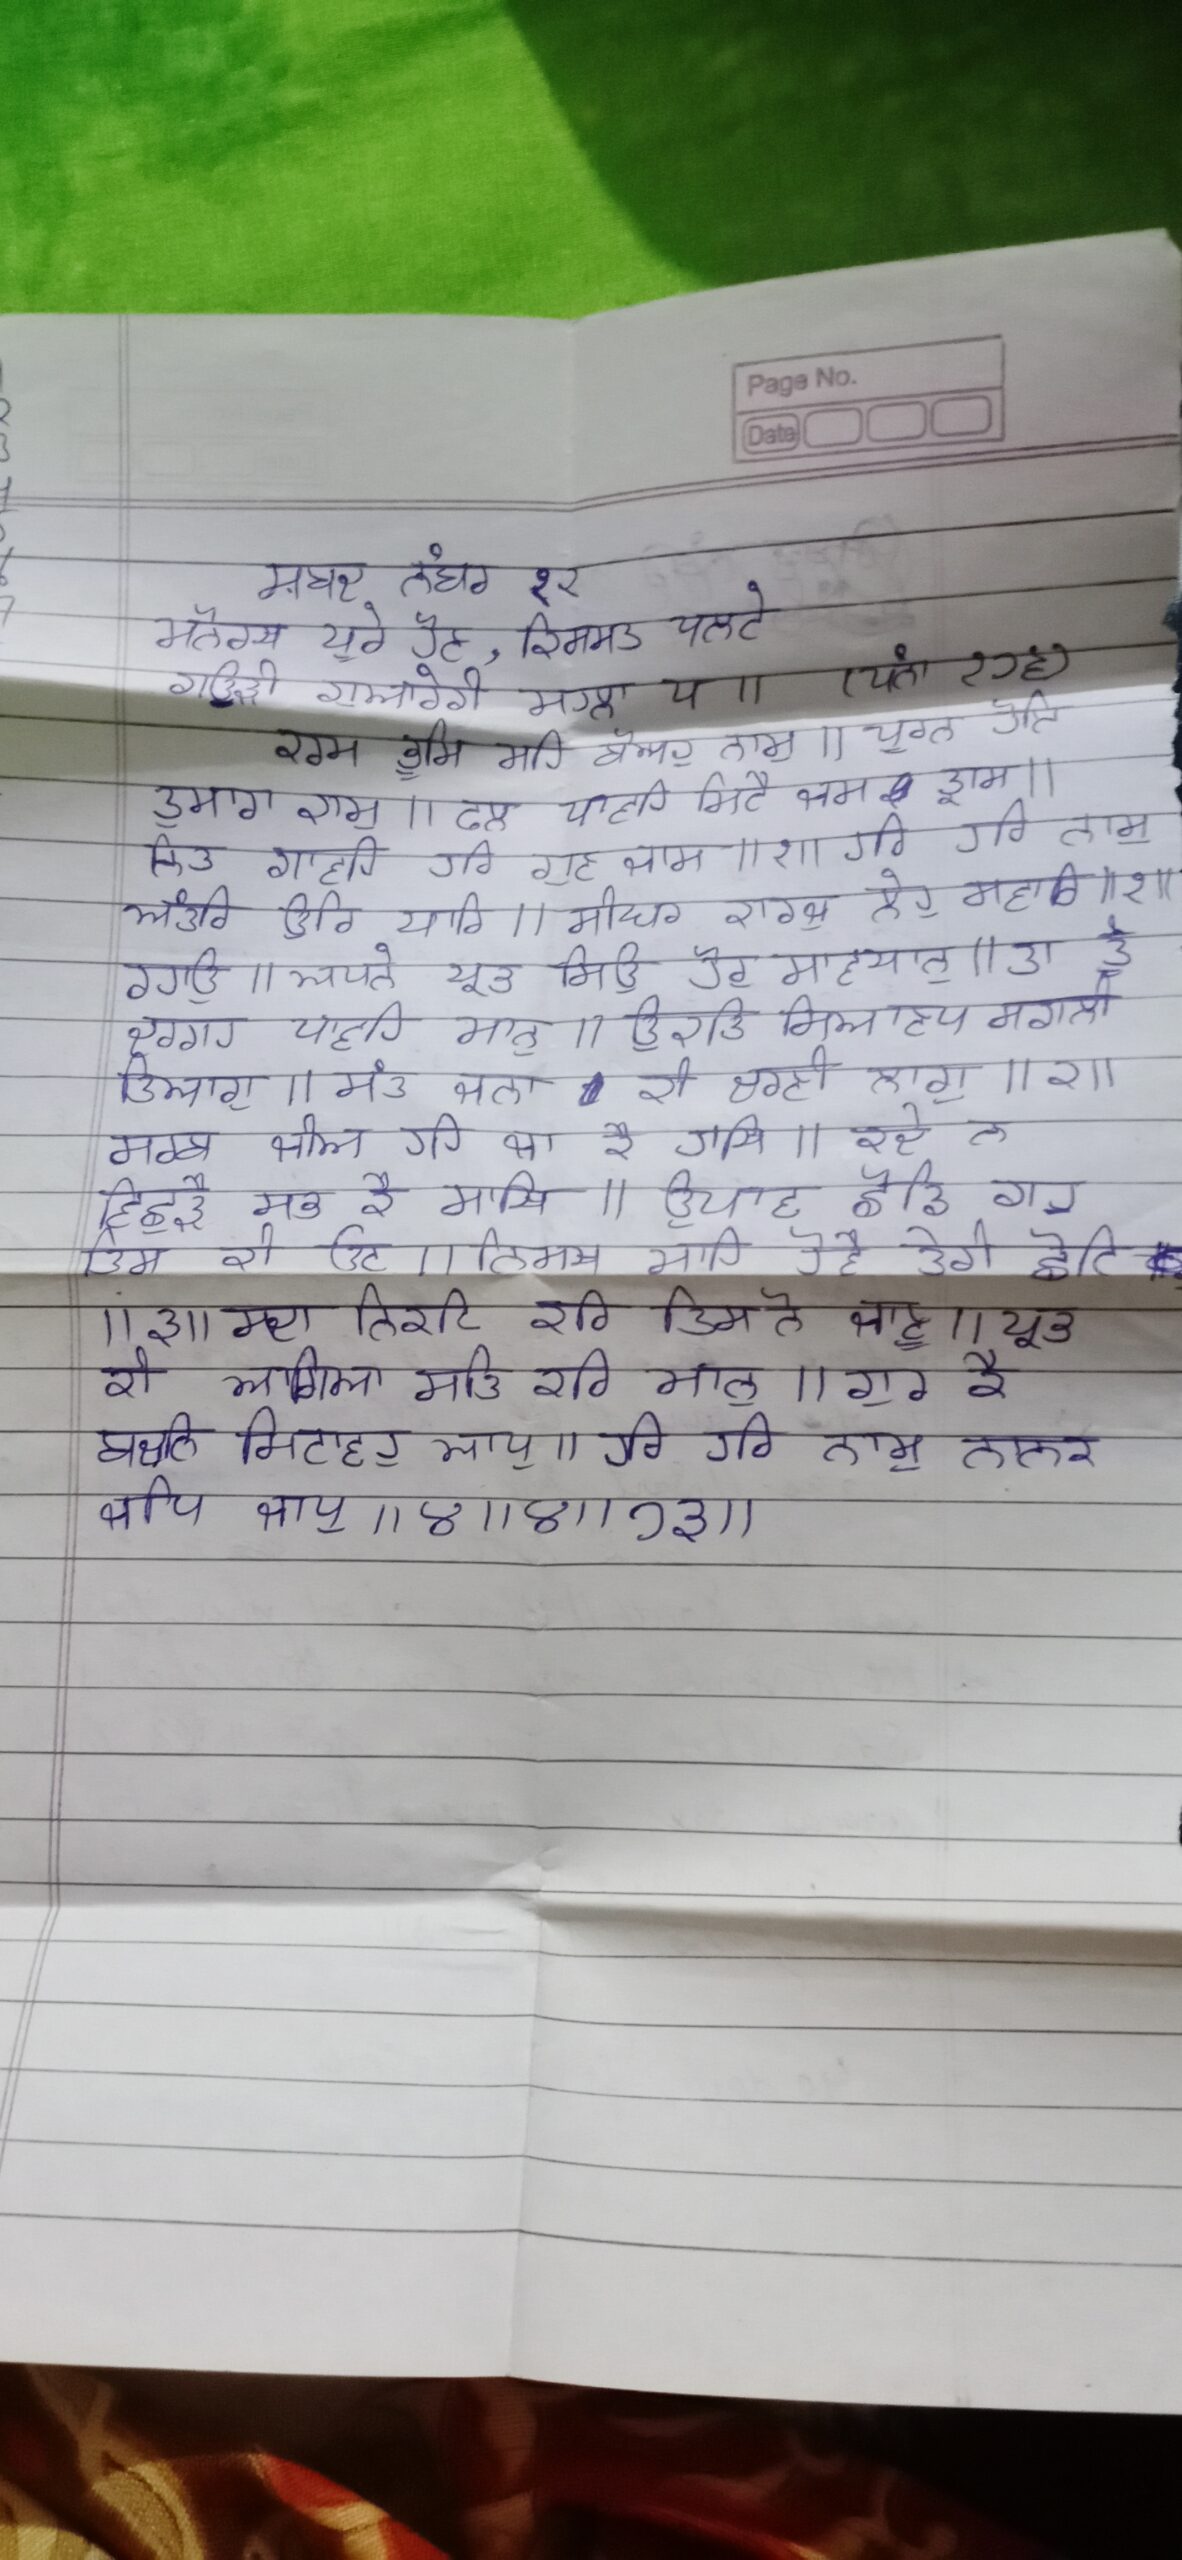 Page No.
Date
ਸ਼ਬਦ ਨੰਬਰ ੧੨
ਮਨੋਰਥ ਪੂਰੇ ਹੋਣ, ਕਿਸਮਤ ਪਲਟੇ
ਗਉੜੀ ਗੁਆਰੇਰੀ ਮਹਲਾ ੫ ॥ (ਪੰਨਾ ੧੭੬)
ਕਰਮ ਭੂਮਿ ਮਹਿ ਬੋਅਹੁ ਨਾਮੁ ॥ ਪੂਰਨ ਹੋਇ
ਤੁਮਾਰਾ ਕਾਮੁ ॥ ਫਲ ਪਾਵਹਿ ਮਿਟੈ ਜਮ ਤ੍ਰਾਸ ॥
ਨਿਤ ਗਾਵਹਿ ਹਰਿ ਗੁਣ ਜਾਸ ॥੧॥ ਹਰਿ ਹਰਿ ਨਾਮੁ
ਅੰਤਰਿ ਉਰਿ ਧਾਰਿ ॥ ਸੀਘਰ ਕਾਰਜੁ ਲੇਹੁ ਸਵਾਰਿ ॥੧॥
ਰਹਾਉ ॥ ਅਪਨੇ ਪ੍ਰਭ ਸਿਉ ਹੋਹੁ ਸਾਵਧਾਨੁ ॥ ਤਾ ਤੂੰ
ਦਰਗਹ ਪਾਵਹਿ ਮਾਨੁ ॥ ਉਕਤਿ ਸਿਆਣਪ ਸਗਲੀ
ਤਿਆਗੁ ॥ ਸੰਤ ਜਨਾ ਕੀ ਚਰਣੀ ਲਾਗੁ ॥੨॥
ਸਰਬ ਜੀਅ ਹਹਿ ਜਾ ਕੈ ਹਾਥਿ ॥ ਕਦੇ ਨ
ਵਿਛੁੜੈ ਸਭ ਕੈ ਸਾਥਿ ॥ ਉਪਾਵ ਛੋਡਿ ਗਹੁ
ਤਿਸ ਕੀ ਓਟ ॥ ਨਿਮਖ ਮਾਹਿ ਹੋਵੈ ਤੇਰੀ ਛੋਟਿ
॥੩॥ ਸਦਾ ਨਿਕਟਿ ਕਰਿ ਤਿਸ ਨੋ ਜਾਣੁ ॥ ਪ੍ਰਭ
ਕੀ ਆਗਿਆ ਸਤਿ ਕਰਿ ਮਾਨੁ ॥ ਗੁਰ ਕੈ
ਬਚਨਿ ਮਿਟਾਵਹੁ ਆਪੁ ॥ ਹਰਿ ਹਰਿ ਨਾਮੁ ਨਾਨਕ
ਜਪਿ ਜਾਪੁ ॥੪॥੪॥੭੩॥